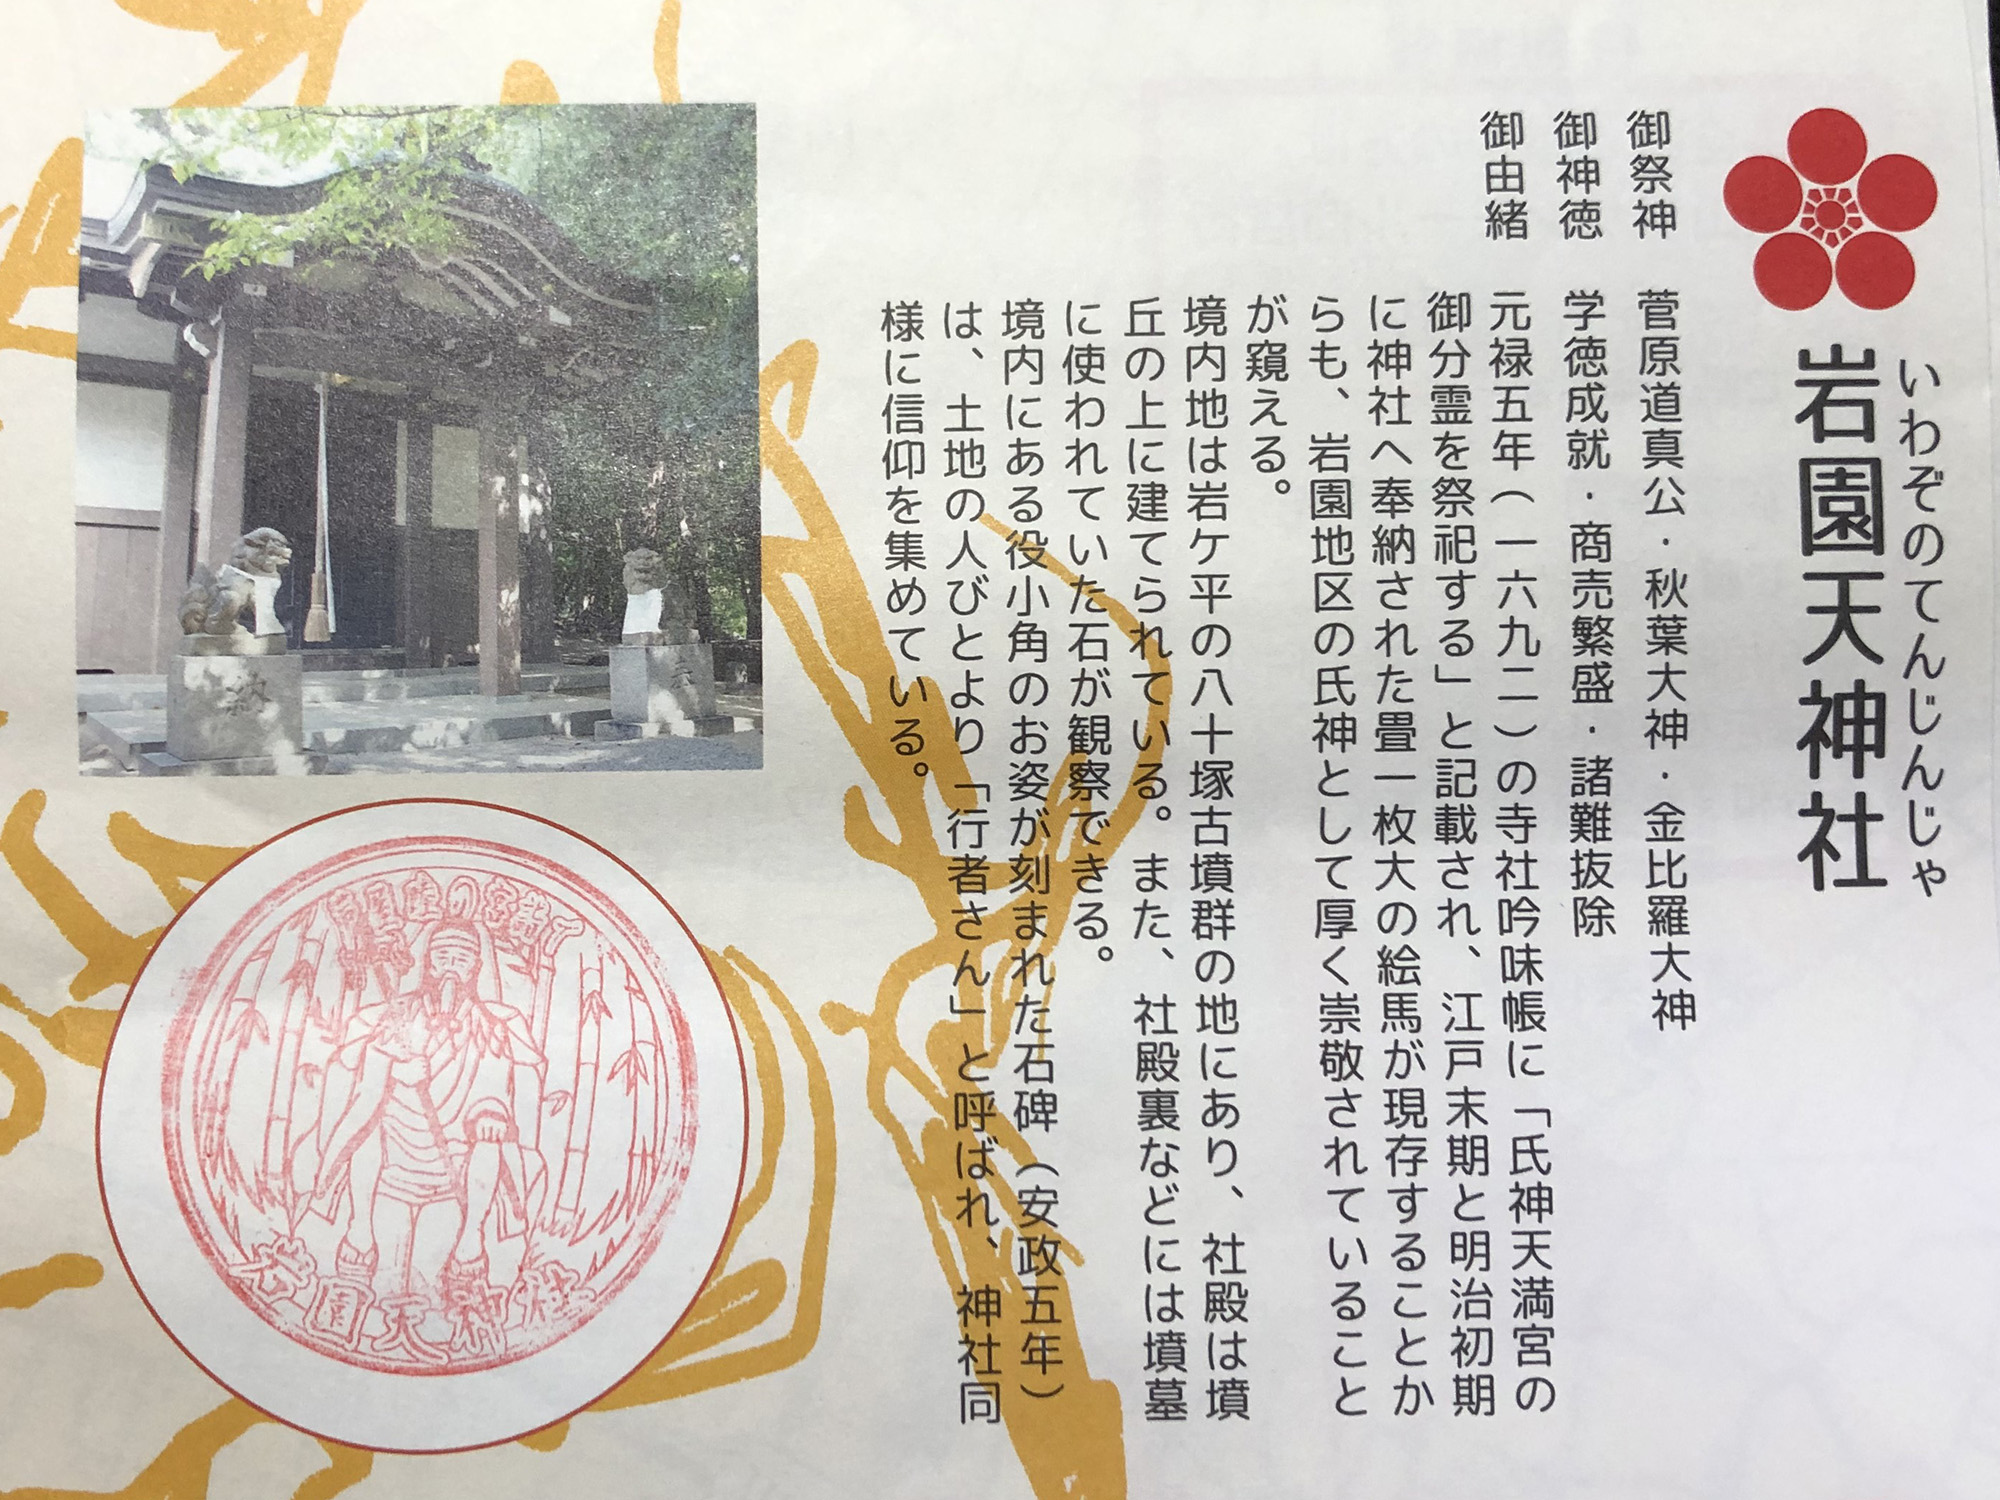 いわぞのてんじんじゃ
岩園天神社
御祭神 菅原道真公・秋葉大神・金比羅大神
御神徳 学徳成就・商売繁盛・諸難抜除
御由緒 元禄五年（一六九二）の寺社吟味帳に「氏神天満宮の
御分霊を祭祀する」と記載され、江戸末期と明治初期
に神社へ奉納された畳一枚大の絵馬が現存することか
らも、岩園地区の氏神として厚く崇敬されていること
が窺える。
境内地は岩ケ平の八十塚古墳群の地にあり、社殿は墳
丘の上に建てられている。また、社殿裏などには墳墓
に使われていた石が観察できる。
境内にある役小角のお姿が刻まれた石碑（安政五年）
は、土地の人びとより「行者さん」と呼ばれ、神社同
様に信仰を集めている。
岩園天神社